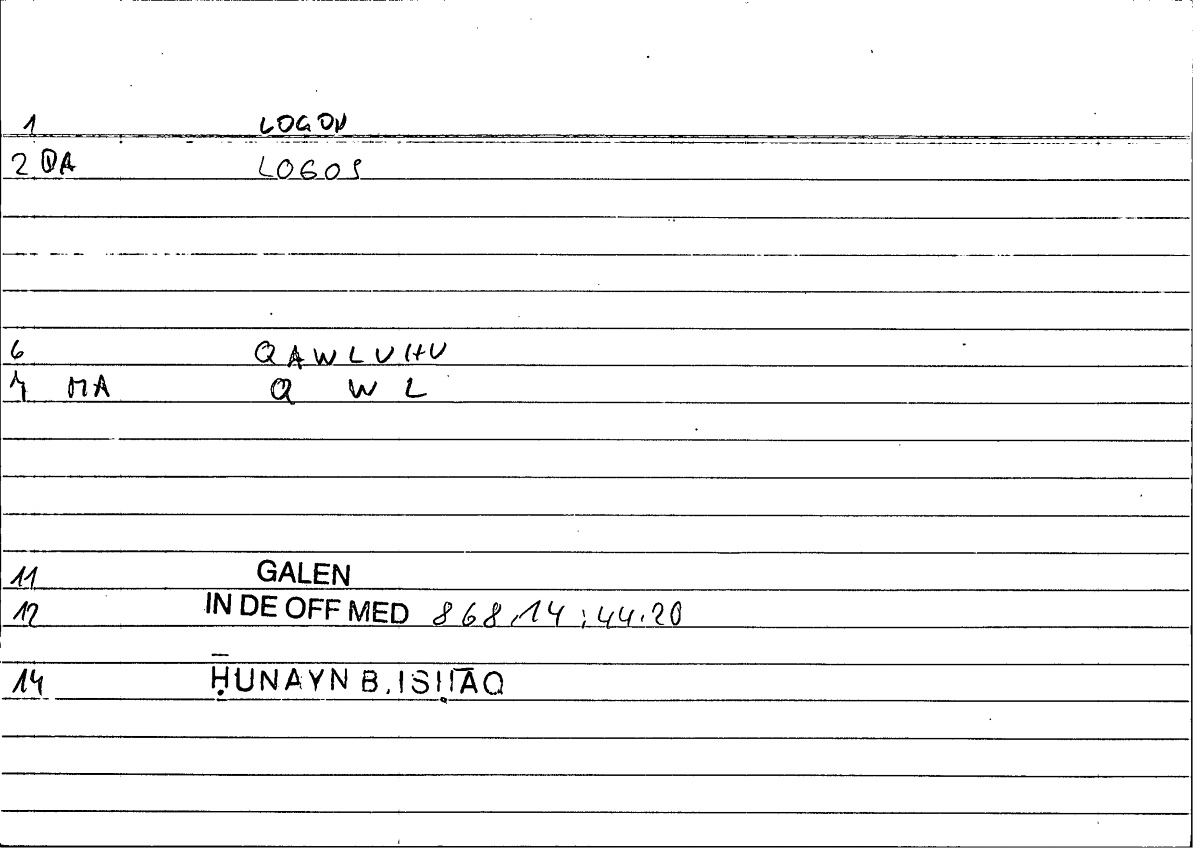 1 LOGON
2 DA LOGOS
6 QAWLUHU
7 MA Q W L
11 GALEN
12 IN DE OFF MED 868,14 ; 44.20
14 ḤUNAYN B. ISḤĀQ